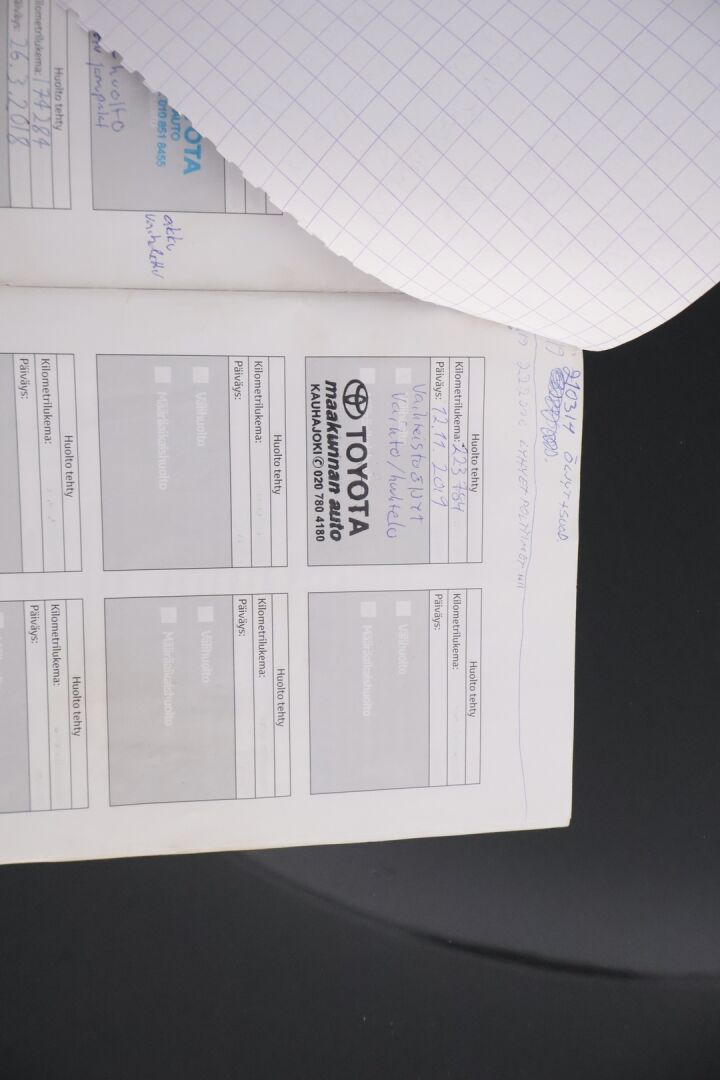 Huolto tehty
Kilometrilukema: 174284
Päiväys: 26.3.2018
huolto
OTA
AUTO
010 851 8455
akku
vaihdettu
210314 ÖLJYT+SUOD.
Huolto tehty
Kilometrilukema: 223 784
Päiväys: 12.11.2019
Vaihteisto öljyt
Vaihto / huuhtelu
TOYOTA
maakunnan auto
KAUHAJOKI ✆ 020 780 4180
Huolto tehty
Kilometrilukema:
Päiväys:
Välihuolto
Määräaikaishuolto
Huolto tehty
Kilometrilukema:
Päiväys:
Välihuolto
Määräaikaishuolto
Huolto tehty
Kilometrilukema:
Päiväys:
Välihuolto
Määräaikaishuolto
Huolto tehty
Kilometrilukema:
Päiväys:
Huolto tehty
Kilometrilukema:
Päiväys: